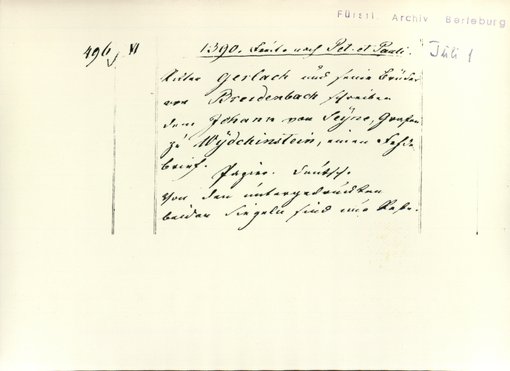 Fürstl. Archiv Berleburg
496, VI
1390. Freit. nach Pet. et Pauli.
Juli 1
Ritter Gerlach und seine Brüder
von Breidenbach schreiben
dem Johann von Seyne, Grafen
zu Wydchinstein, einen Fehde
brief.
Papier. Deutsch.
Von den untergedruckten
beiden Siegeln sind nur Reste.